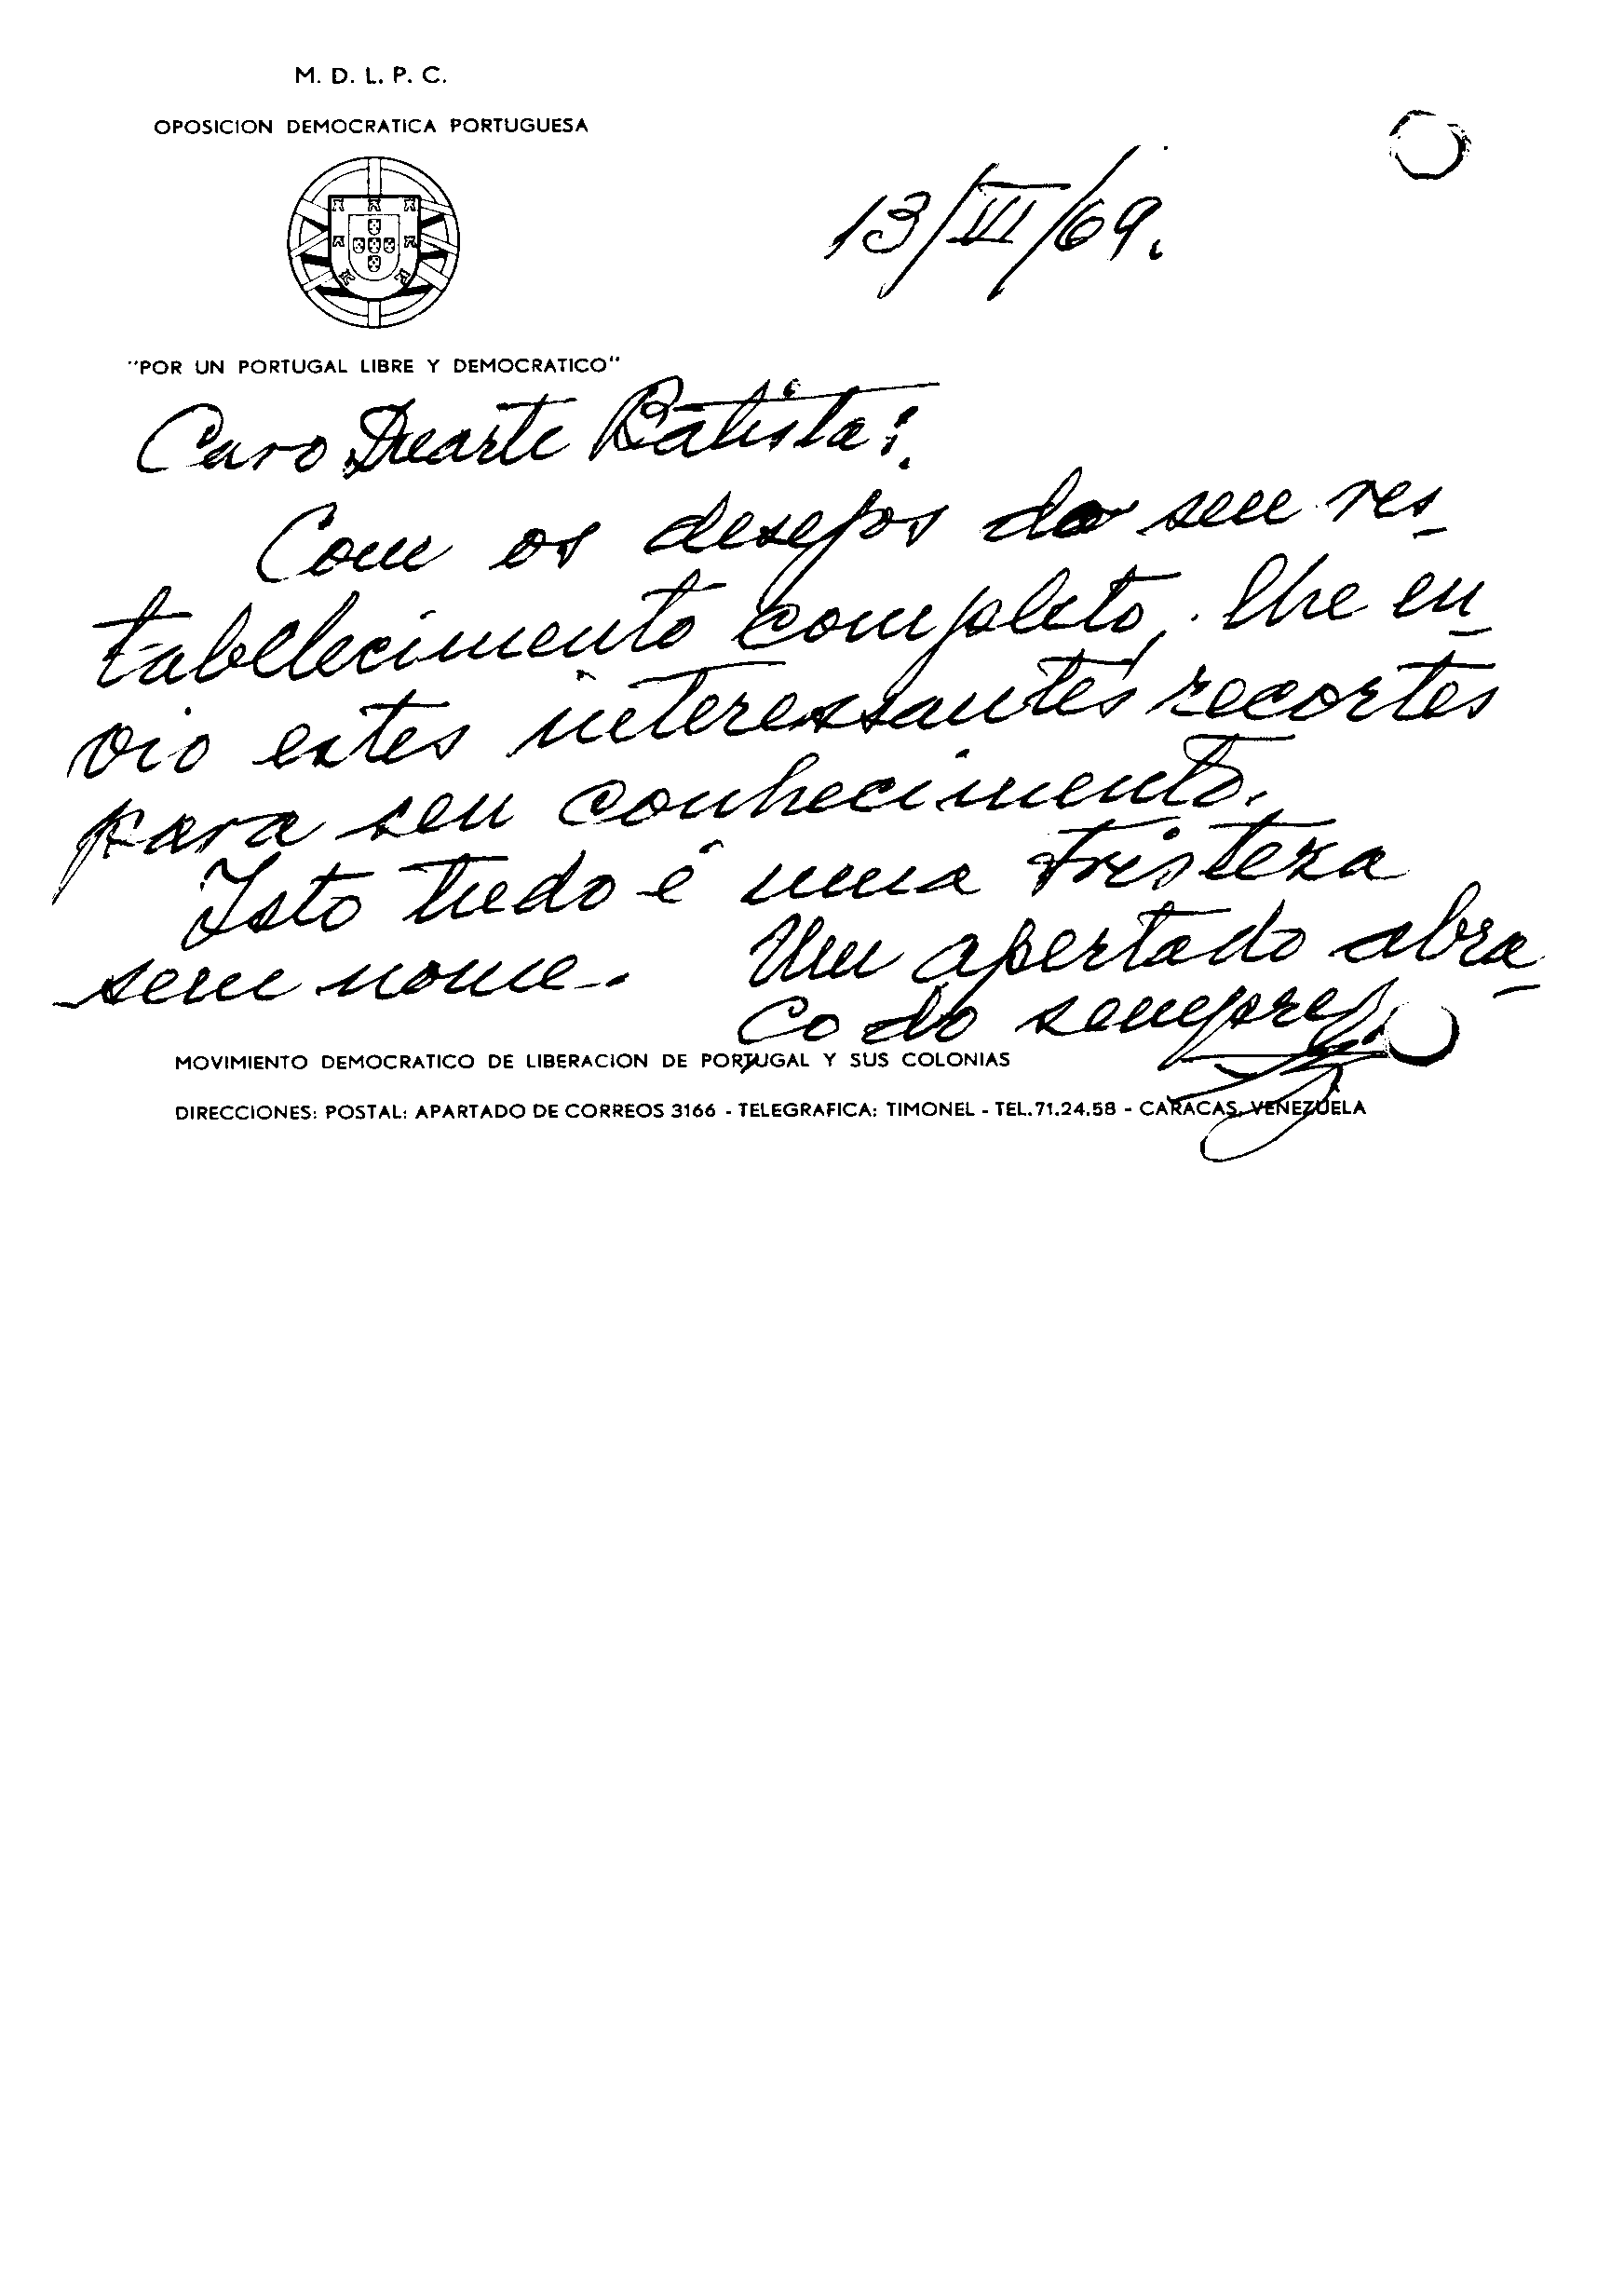 M. D. L. P. C.
OPOSICION DEMOCRATICA PORTUGUESA
13/VI/69.
"POR UN PORTUGAL LIBRE Y DEMOCRATICO"
Caro Duarte Batista:
Com os desejos do seu res_
tabellecimento completo, lhe en_
vio estes interessantes recortes
para seu conhecimento.
Isto tudo é uma tristeza
sem nome.. Um apertado abra_
co do sempre
MOVIMIENTO DEMOCRATICO DE LIBERACION DE PORTUGAL Y SUS COLONIAS
DIRECCIONES: POSTAL: APARTADO DE CORREOS 3166 - TELEGRAFICA: TIMONEL - TEL.71.24.58 - CARACAS, VENEZUELA